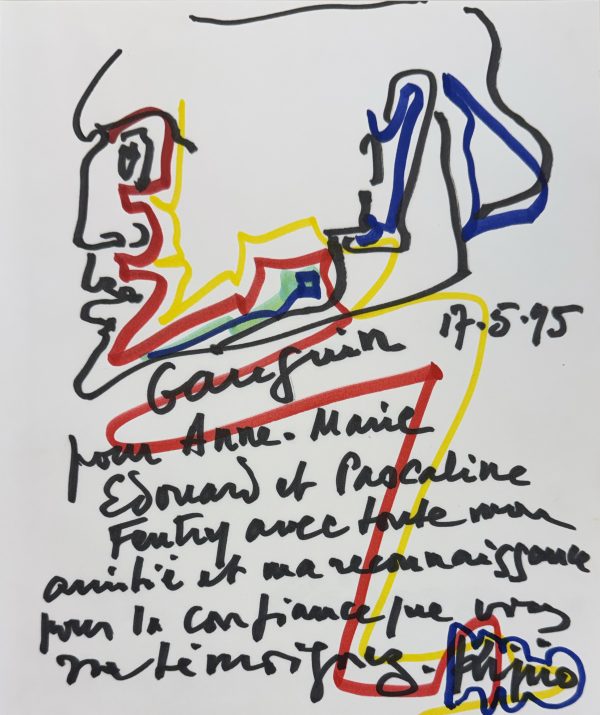 17.5.95
Gauguin
pour Anne-Marie
Edouard et Pascaline
avec toute mon
amitié et ma reconnaissance
pour la confiance que vous
me témoignez.